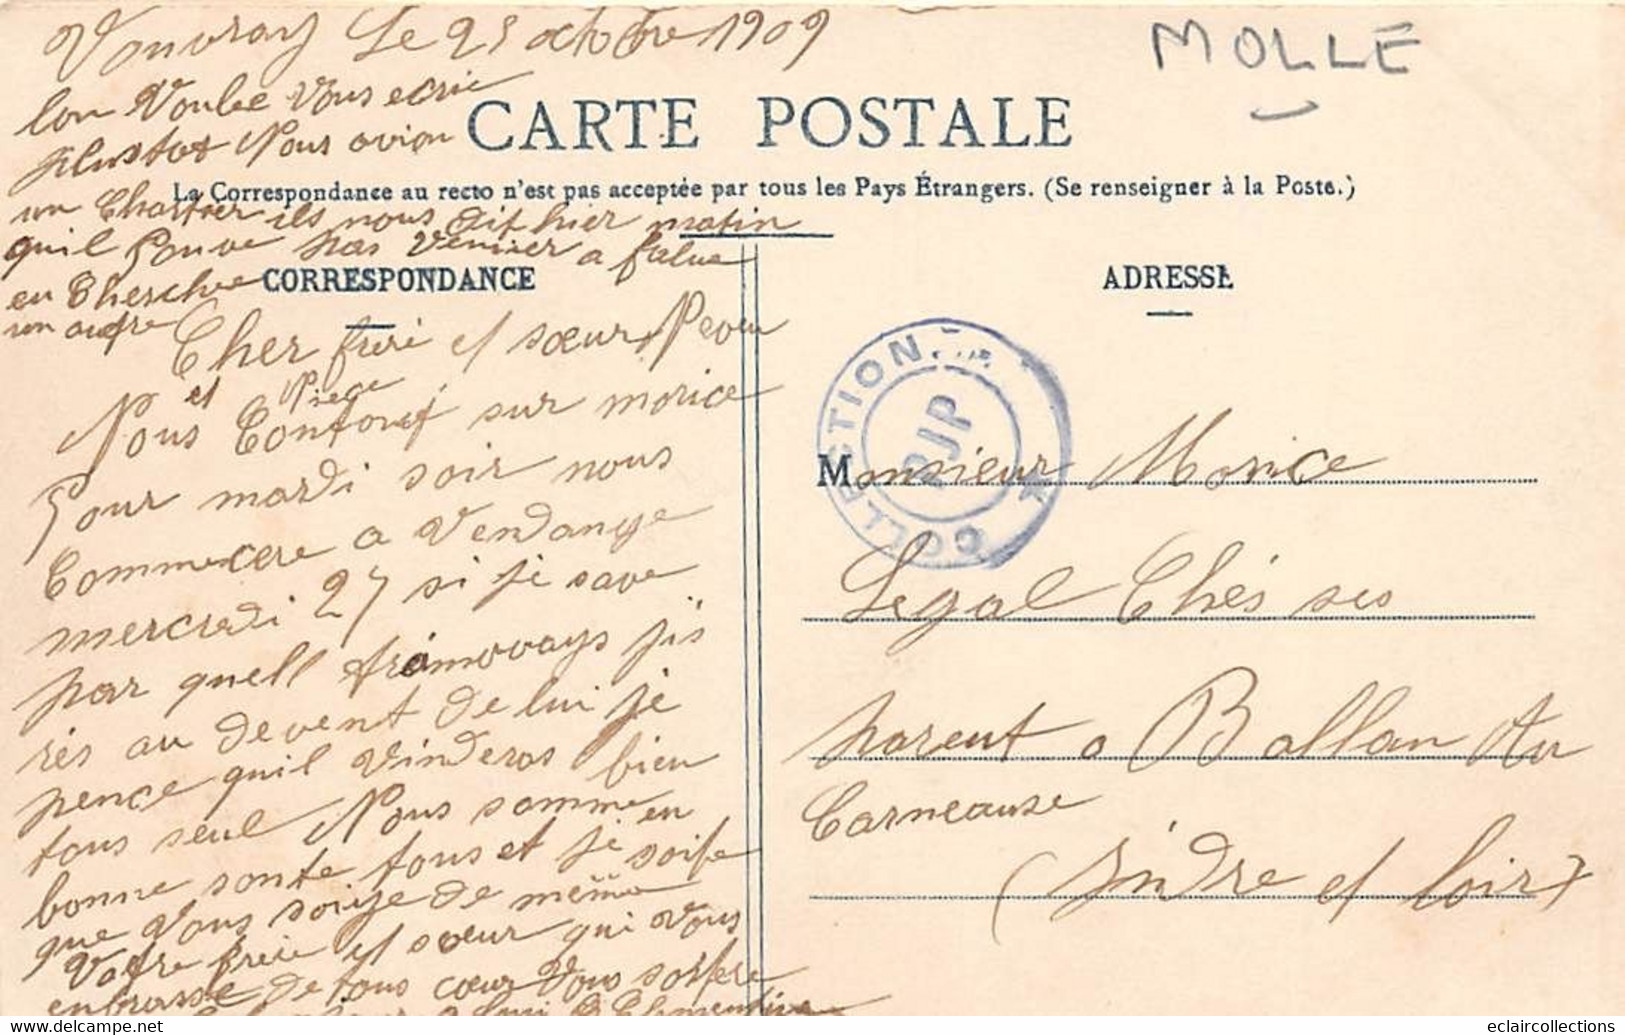 Vouvray Le 25 octobre 1909
MOLLE
lon Voulee Vous ecrie
plustot Nous avion
CARTE POSTALE
La Correspondance au recto n'est pas acceptée par tous les Pays Étrangers. (Se renseigner à la Poste.)
un Chartier ils nous dit hier matin
quil Pouve pas venier a falue
en Cherchee
un autre
CORRESPONDANCE
ADRESSE
Cher frere et sœur et Neveu
et Piege
Nous Contons sur morice
Pour mardi soir nous
Commencere a Vendange
mercredi 27 si je save
par quell tramways jis
rés au devent de lui je
pence quil vinderas bien
tous seul Nous somme en
bonne sante tous et je soite
que Vous soize de même
Votre frere et sœur qui Vous
enbrasse de tous cœur Vous
COLLECTION
PJP
Monsieur Morice
Legal Chés ses
parent a Ballan Au
Carneause
(Indre et loir)
eclaircollections